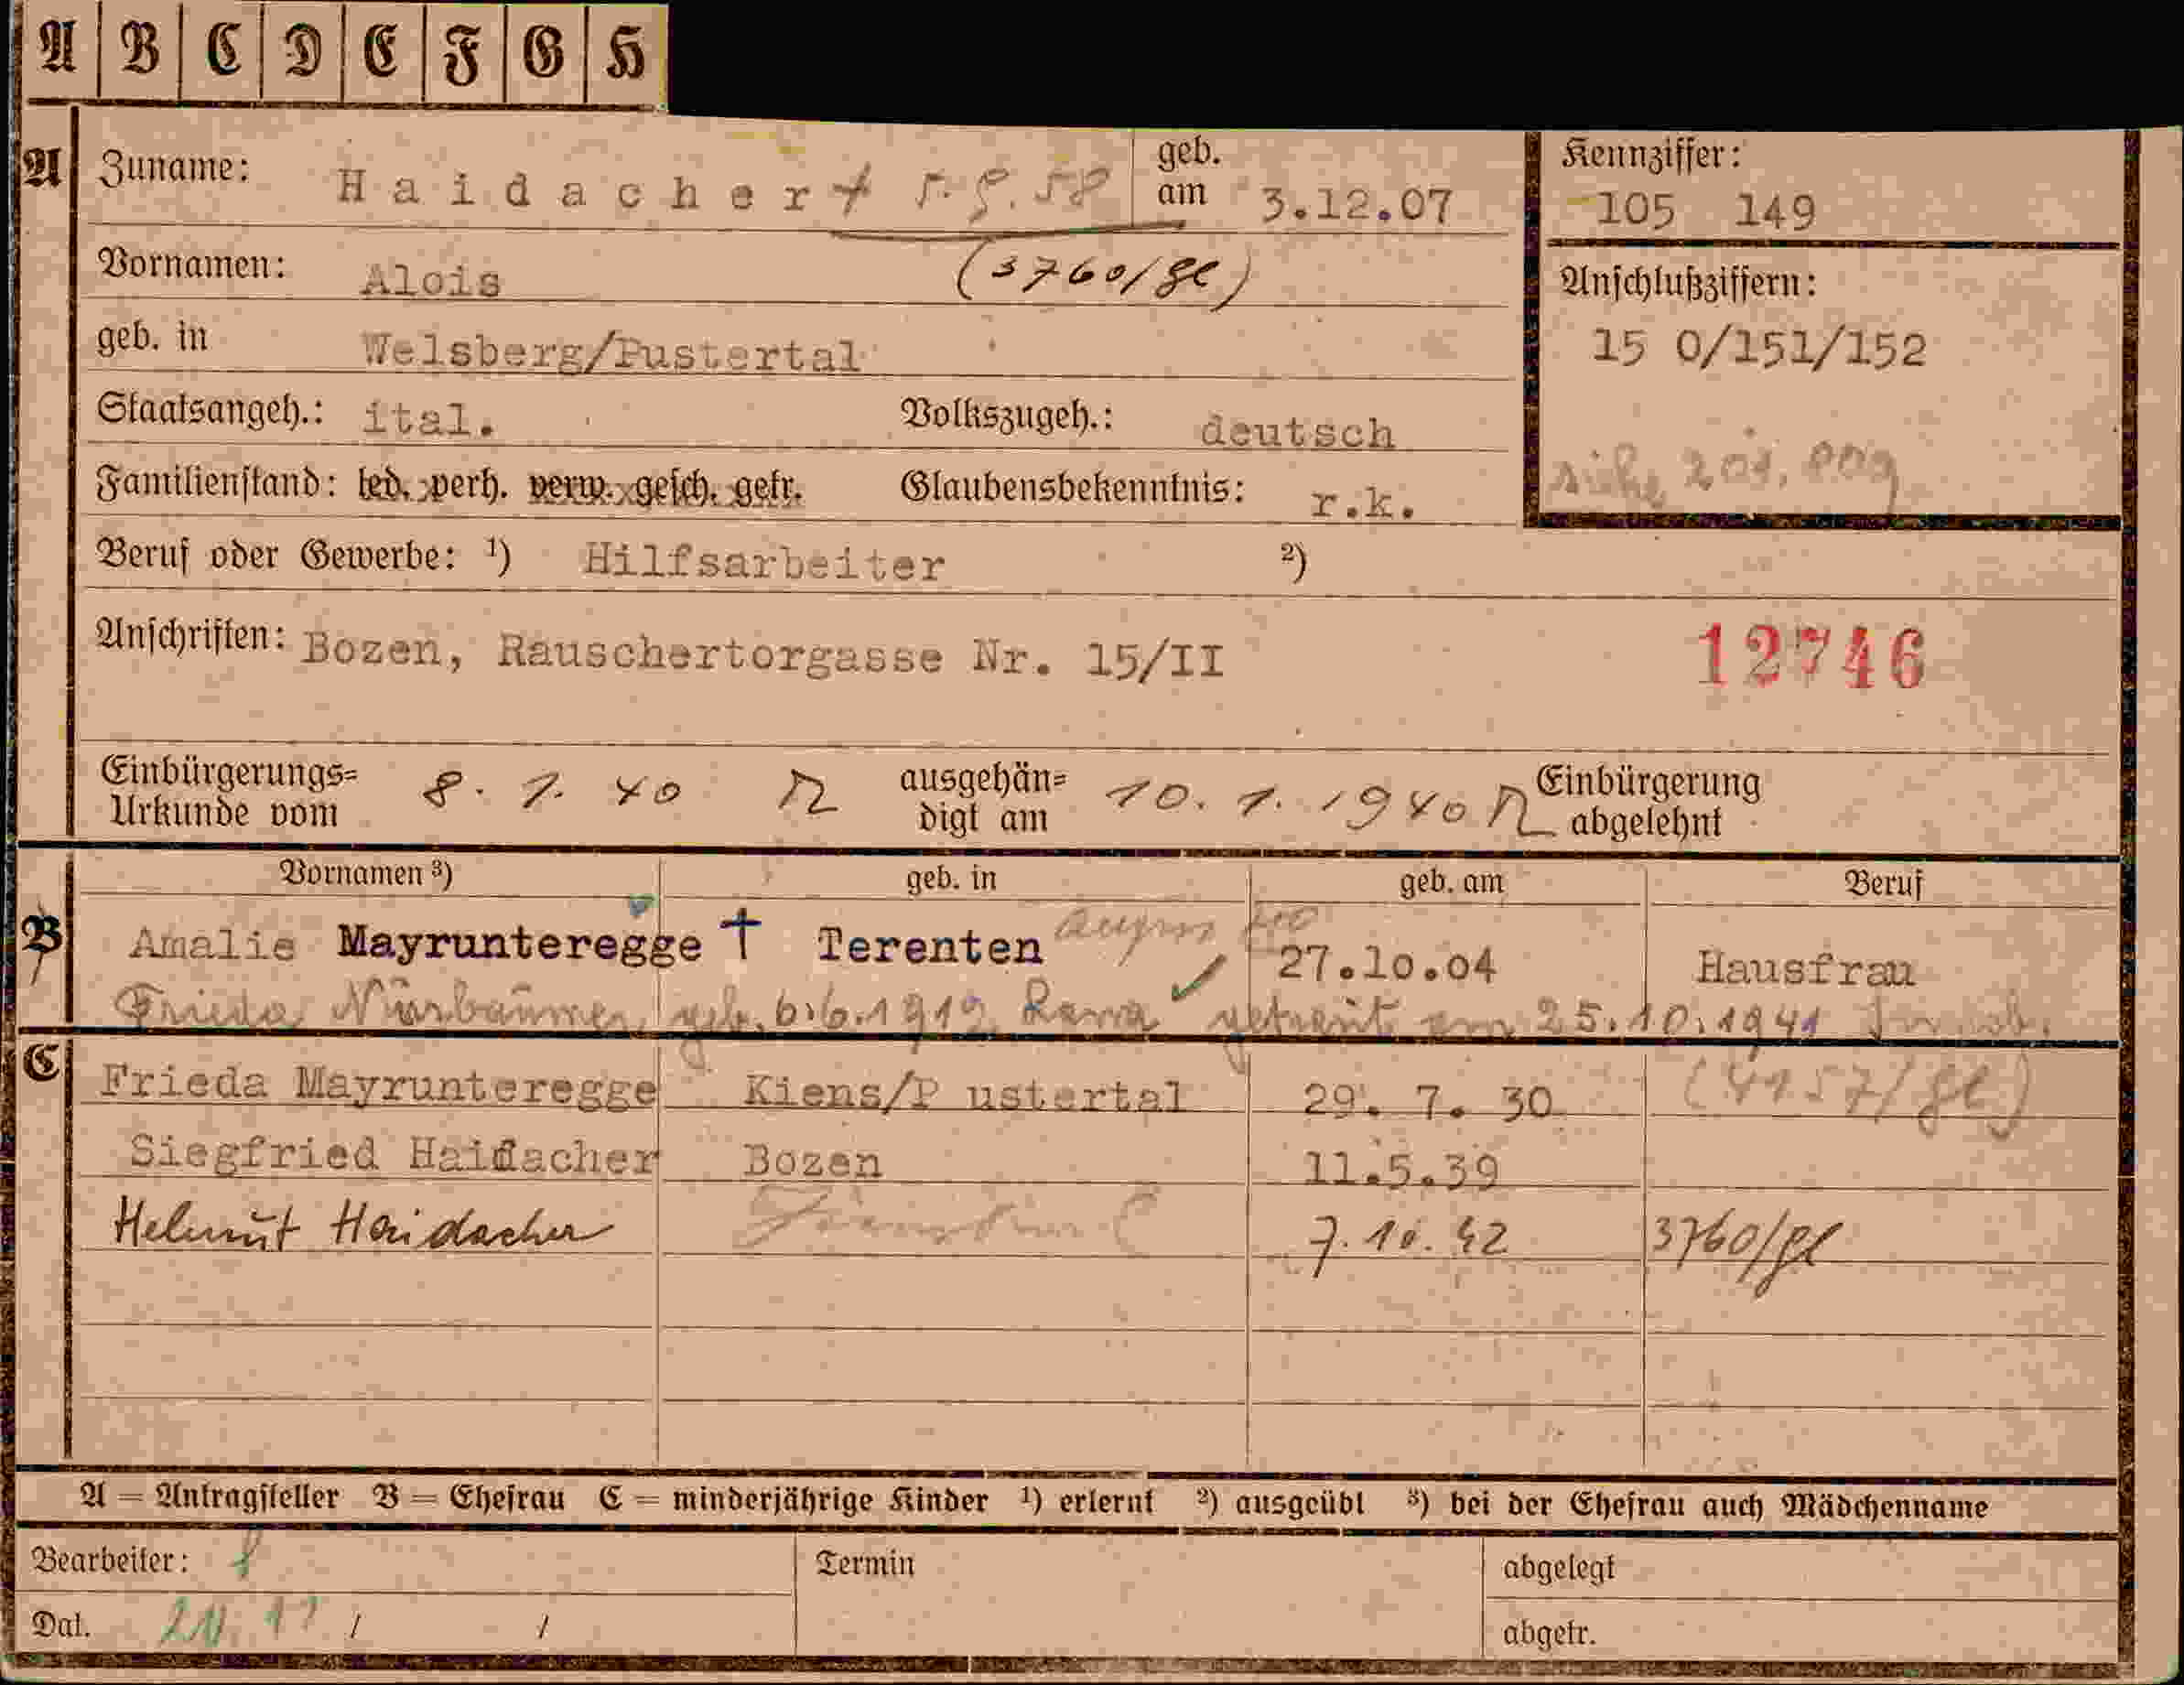 A B C D E F G H
A Zuname: Haidacher geb. am 3.12.07 Kennziffer: 105 149
Vornamen: Alois (3760/gl) Anschlußziffern:
geb. in Welsberg/Pustertal 15 0/151/152
Staatsangeh.: ital. Volkszugeh.: deutsch
Familienstand: led. verh. verw. gesch. getr. Glaubensbekenntnis: r.k. siehe
Beruf oder Gewerbe: ¹) Hilfsarbeiter ²)
Anschriften: Bozen, Rauschertorgasse Nr. 15/II 12746
Einbürgerungs= Urkunde vom 8. 1. 40 ausgehän= digt am 10. 1. 1940 Einbürgerung abgelehnt
Vornamen ³) geb. in geb. am Beruf
B Amalie Mayrunteregge † Terenten 27.10.04 Hausfrau
Frieda geb. 6.6.1912 getraut am 25.10.1941
C Frieda Mayrunteregge Kiens/P ustertal 29. 7. 30 (4157/gl)
Siegfried Haidacher Bozen 11.5.39
Helmut Haidacher 7.10.42 3760/gl
A = Antragsteller B = Ehefrau C = minderjährige Kinder ¹) erlernt ²) ausgeübt ³) bei der Ehefrau auch Mädchenname
Bearbeiter: Termin abgelegt
Dat. / / abgetr.